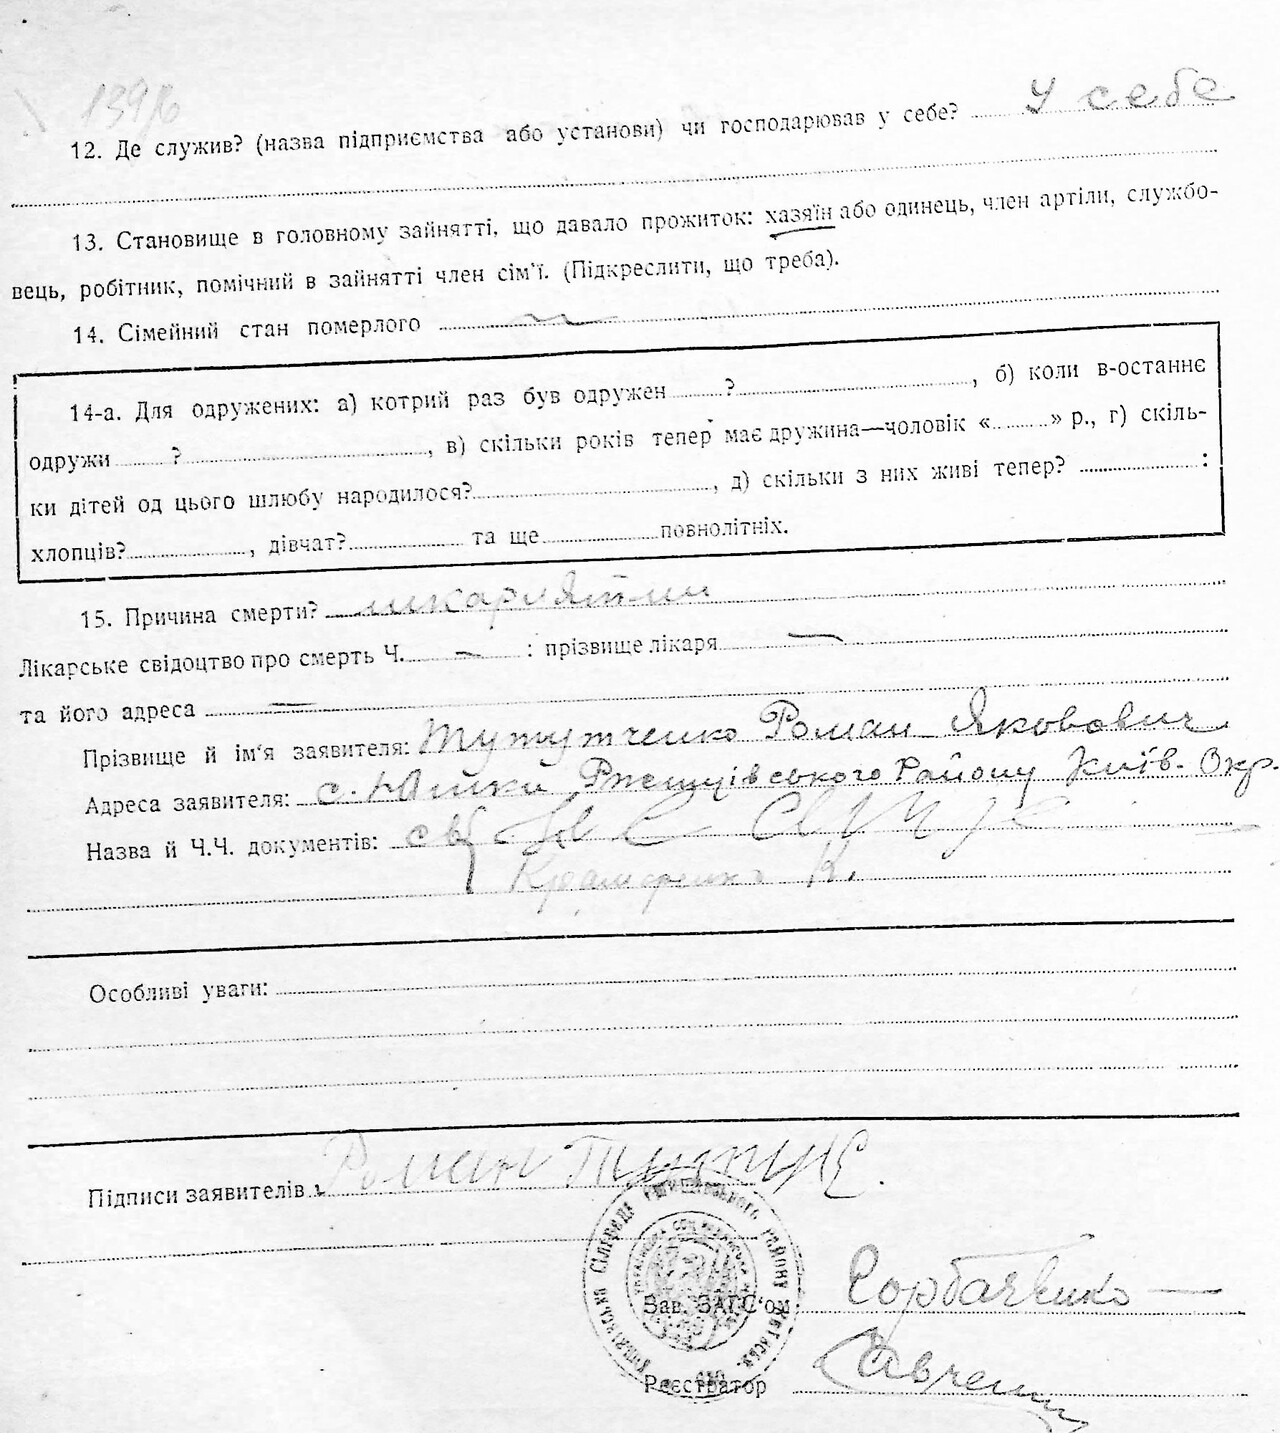 139/6
12. Де служив? (назва підприємства або установи) чи господарював у себе? У себе
13. Становище в головному зайнятті, що давало прожиток: хазяїн або одинець, член артіли, службо-
вець, робітник, помічний в зайнятті член сім'ї. (Підкреслити, що треба).
14. Сімейний стан померлого
14-а. Для одружених: а) котрий раз був одружен ? , б) коли в-останнє
одружи ? , в) скільки років тепер має дружина—чоловік « » р., г) скіль-
ки дітей од цього шлюбу народилося? , д) скільки з них живі тепер? :
хлопців? , дівчат? та ще повнолітніх.
15. Причина смерти?
Лікарське свідоцтво про смерть Ч. — : прізвище лікаря —
та його адреса —
Прізвище й ім'я заявителя: Тутутченко Роман Яковович
Адреса заявителя: с. Юшки Ржищівського Району Київ. Окр.
Назва й Ч.Ч. документів:
Крамаренко
Особливі уваги:
Підписи заявителів: Роман
Зав. ЗАГС'ом Горбатенко —
Реєстратор Савченко